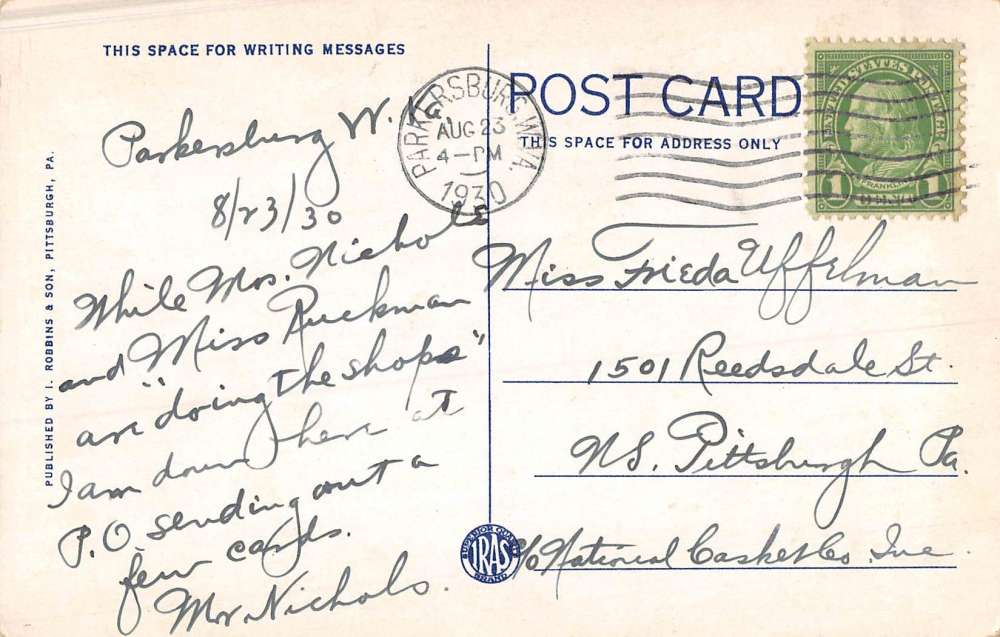 THIS SPACE FOR WRITING MESSAGES
Parkersburg W. Va.
8/23/30
While Mrs. Nichols
and Miss Ruckman
are "doing the shops"
I am down here at
P.O. sending out a
few cards.
Mr. Nichols.
PUBLISHED BY I. ROBBINS & SON, PITTSBURGH, PA.
PARKERSBURG, W. VA.
AUG 23
4-PM
1930
POST CARD
THIS SPACE FOR ADDRESS ONLY
UNITED STATES POSTAGE
FRANKLIN
1 1
Miss Frieda Uffelman
1501 Reedsdale St.
N.S. Pittsburgh Pa.
c/o National Casket Co. Inc.
SUPERIOR QUALITY
IRAS
BRAND